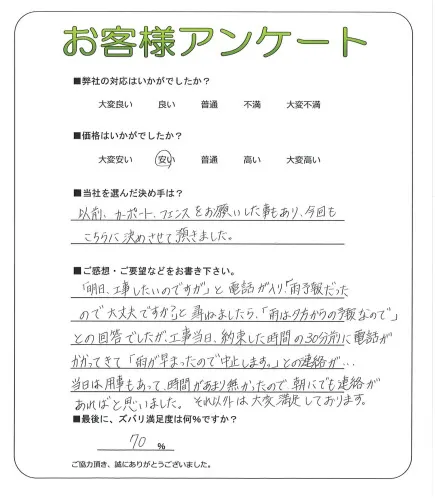 お客様アンケート
■弊社の対応はいかがでしたか?
大変良い 良い 普通 不満 大変不満
■価格はいかがでしたか?
大変安い 安い 普通 高い 大変高い
■当社を選んだ決め手は?
以前、カーポート、フェンスをお願いした事もあり、今回も
こちらに決めさせて頂きました。
■ご感想・ご要望などをお書き下さい。
「明日、工事したいのですが」と電話が入り「雨予報だった
ので大丈夫ですか?」と尋ねましたら、「雨は夕方からの予報なので」
との回答でしたが、工事当日、約束した時間の30分前に電話が
かかってきて「雨が早まったので中止します。」との連絡が…
当日は用事もあって、時間があまり無かったので、朝にでも連絡が
あればと思いました。それ以外は大変満足しております。
■最後に、ズバリ満足度は何%ですか?
70 %
ご協力頂き、誠にありがとうございました。